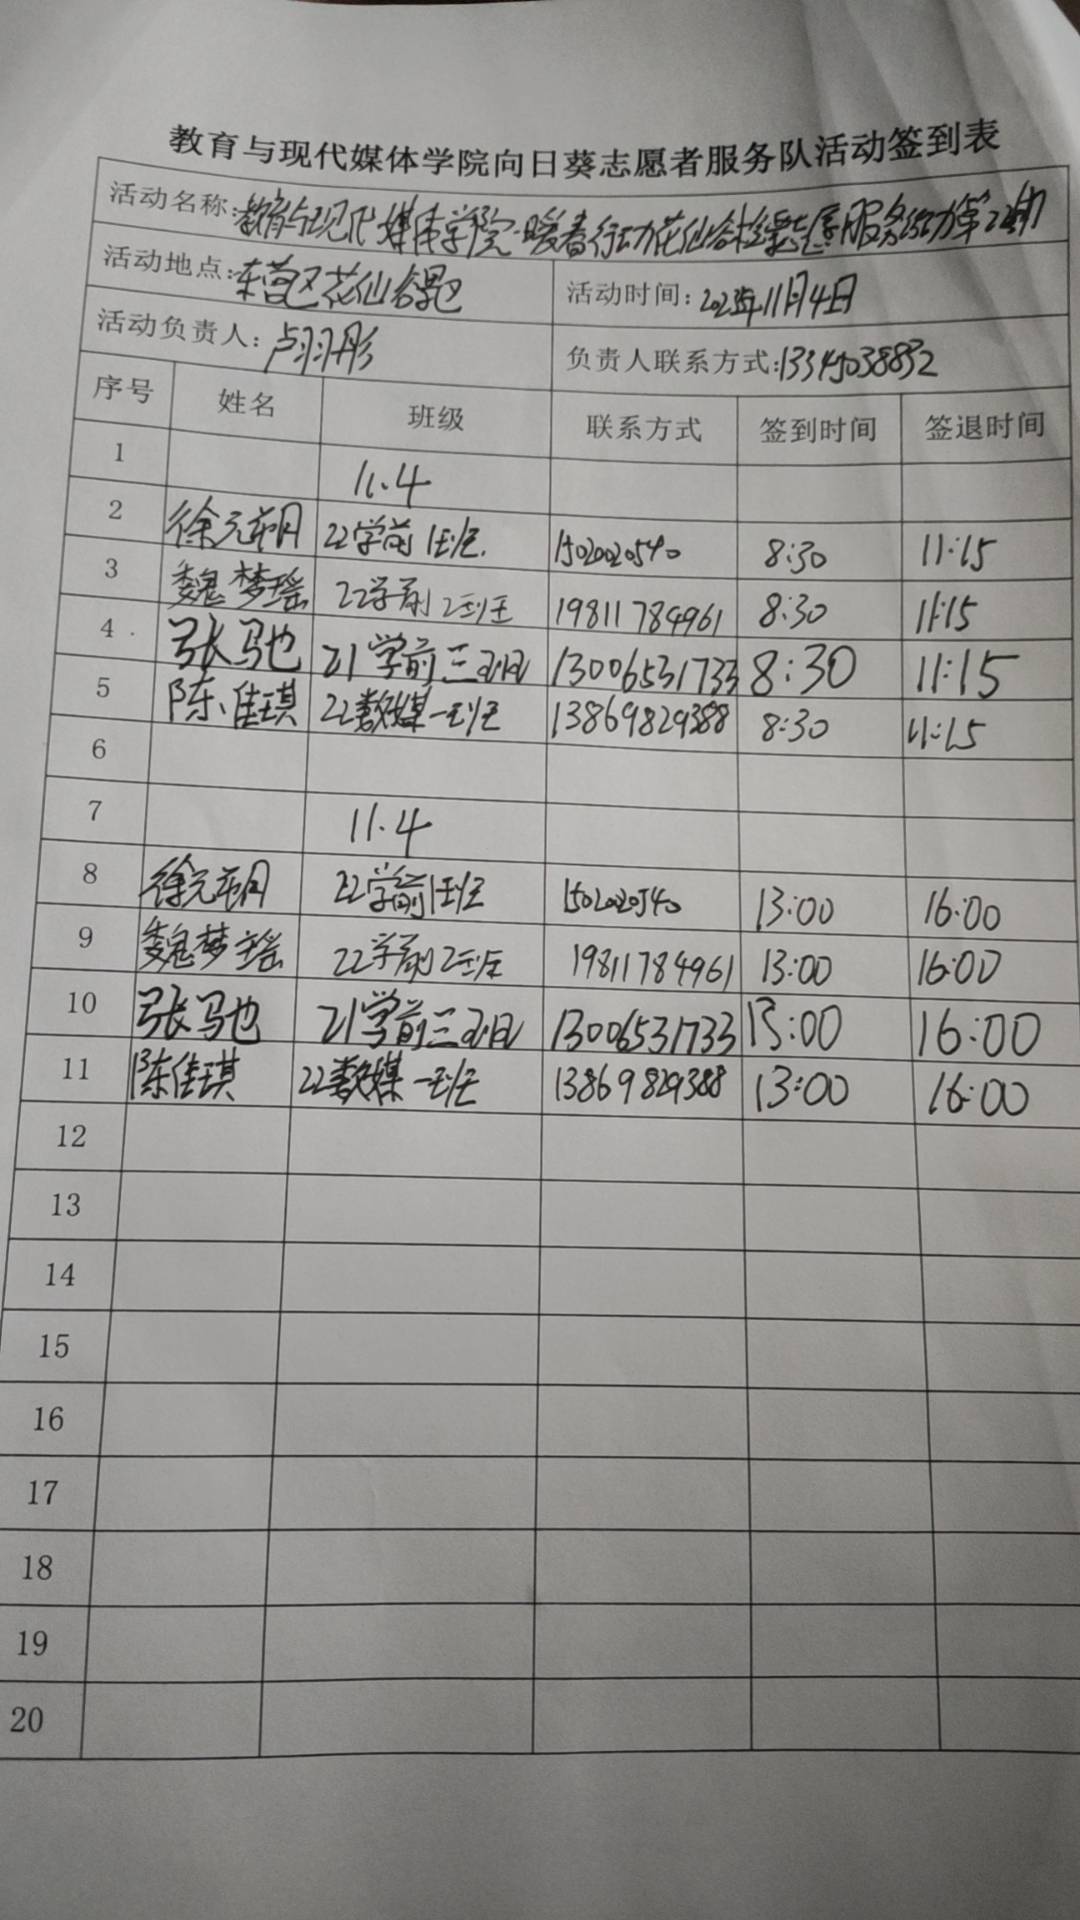 教育与现代媒体学院向日葵志愿者服务队活动签到表
活动名称：教育与现代媒体学院·暖春行动花仙谷 志愿服务活动第22期
活动地点：东营区花仙谷 活动时间：2023年11月4日
活动负责人：卢羽彤 负责人联系方式：
序号 姓名 班级 联系方式 签到时间 签退时间
1 11.4
2 徐元朔 22学前1班. 1502020540 8:30 11:15
3 魏梦瑶 22学前2班 19811784961 8:30 11:15
4 张驰 21学前三班 13006531733 8:30 11:15
5 陈佳琪 22数媒一班 13869829388 8:30 11:15
6
7 11.4
8 徐元朔 22学前1班 1502020540 13:00 16:00
9 魏梦瑶 22学前2班 19811784961 13:00 16:00
10 张驰 21学前三班 13006531733 13:00 16:00
11 陈佳琪 22数媒一班 13869829388 13:00 16:00
12
13
14
15
16
17
18
19
20